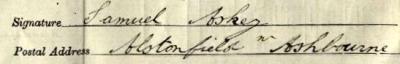 Signature Samuel Askey
Postal Address Alstonfield nr Ashbourne